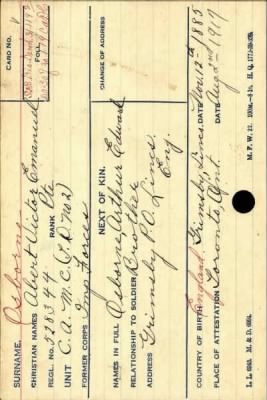 CARD NO.
FOLL.
SURNAME. Osborne
CHRISTIAN NAMES Albert Victor Emanuel
REGL. No. 528344 RANK Pte
UNIT C.A.M.C. (T.D. No 2)
FORMER CORPS Imp. Forces
CHANGE OF ADDRESS
NEXT OF KIN.
NAMES IN FULL Osborne, Arthur Edward
RELATIONSHIP TO SOLDIER Brother
ADDRESS Grimsby P.O. Lincs.
Eng.
COUNTRY OF BIRTH England, Grimsby, Lincs. DATE Nov. 12th 1885
PLACE OF ATTESTATION Toronto, Ont. DATE Aug 2nd 1917